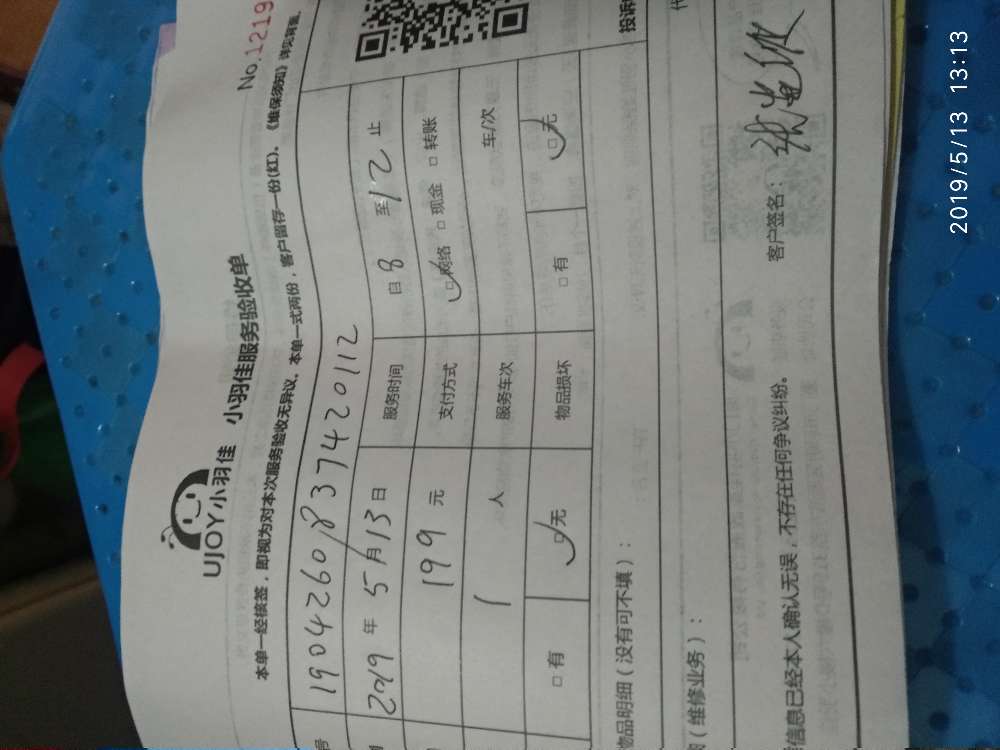 No.1219
UJOY小羽佳 小羽佳服务验收单
本单一经核签，即视为对本次服务验收无异议，本单一式两份，客户留存一份(红)。《维保须知》详见背面。
号 190426083742 0112
2019 年 5 月 13 日 服务时间 日 8 至 12 止
199 元 支付方式 ☑网络 □现金 □转账
1 人 服务车次 车/次
□有 ☑无 物品损坏 □有 ☑无
物品明细（没有可不填）：
（维修业务）： 投诉
信息已经本人确认无误，不存在任何争议纠纷。 客户签名：
代
2019/5/13 13:13